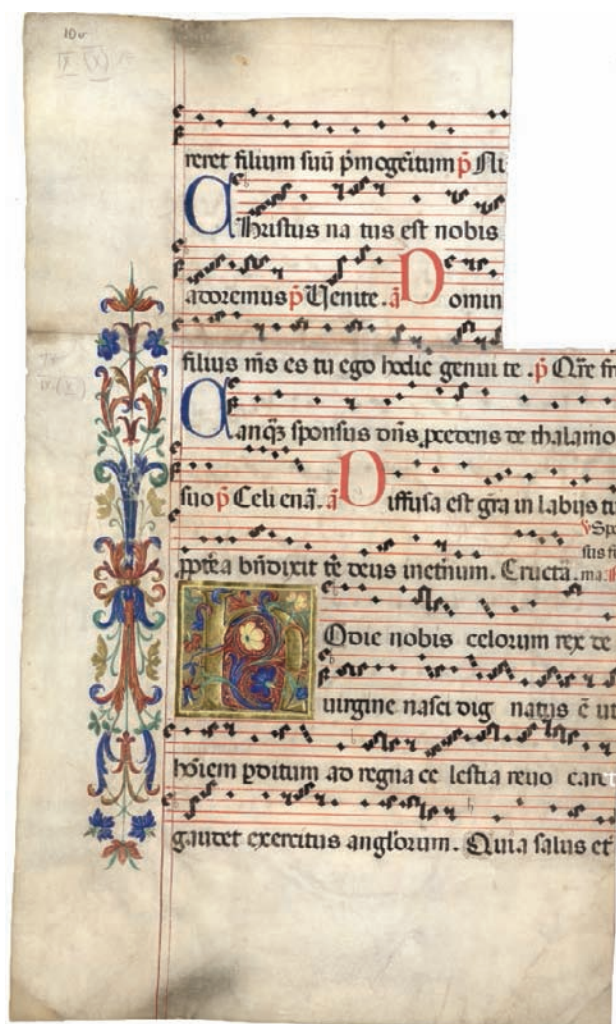 10v
reret filium suū p̄mogeītum p̄ Ni
Christus na tus est nobis
adoremus p̄ Uenite. ā Domin
filius m̄s es tu ego hodie genui te . p̄ Q̄re fr
Tanqꝫ sponsus dn̄s p̱cedens de thalamo
suo p̄ Celi enā. ā Diffusa est gr̄a in labijs tu
v̄ Spō
sus su
ꝓpt̄ea bn̄dixit te deus inet̄num. Eructā. ma.
Hodie nobis celorum rex de
uirgine nasci dig natus ē ut
hōiem ꝑditum ad regna ce lestia reuo caret
gaudet exercitus angl̄orum. Quia salus et